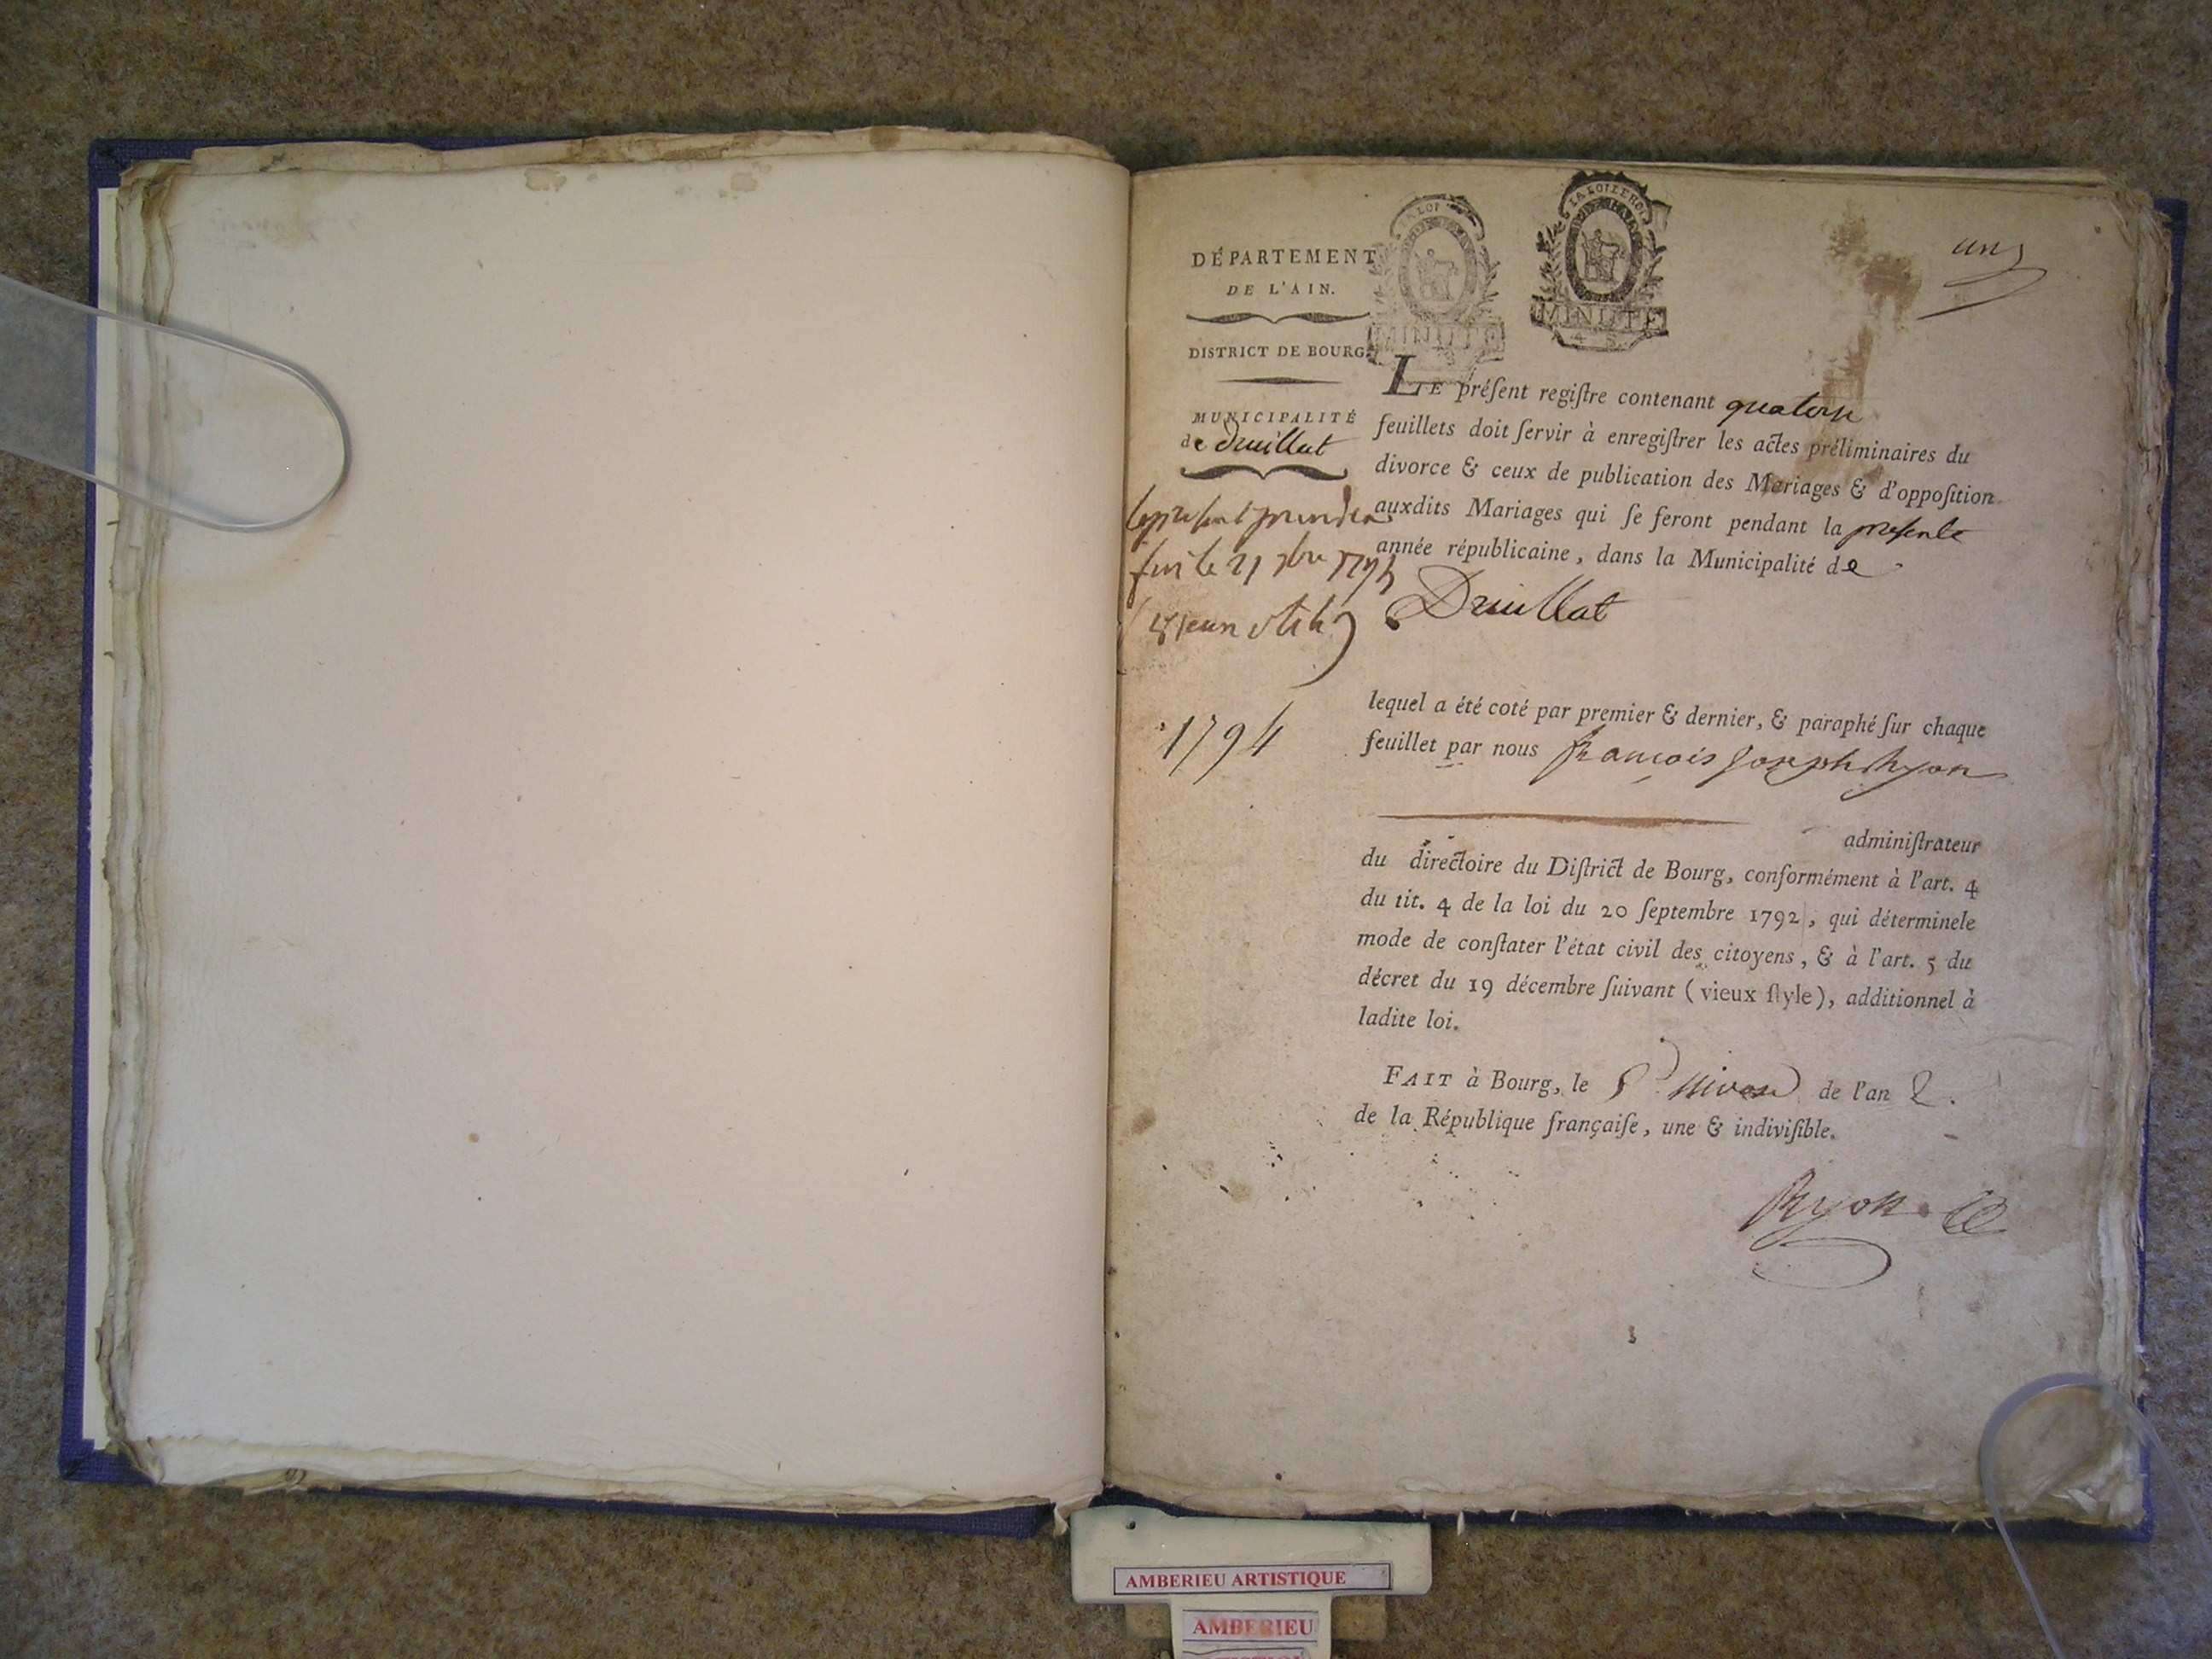 DÉPARTEMENT
DE L'AIN.
DISTRICT DE BOURG.
MUNICIPALITÉ
de Druillat
1794
LA LOI
MINUTE
LA LOI LE ROI
MINUTE
un
LE préſent regiſtre contenant quatorze
feuillets doit ſervir à enregiſtrer les actes préliminaires du
divorce & ceux de publication des Mariages & d'oppoſition
auxdits Mariages qui ſe feront pendant la preſente
année républicaine, dans la Municipalité de
Druillat
lequel a été coté par premier & dernier, & paraphé ſur chaque
feuillet par nous francois Joseph
adminiſtrateur
du directoire du Diſtrict de Bourg, conformément à l'art. 4
du tit. 4 de la loi du 20 ſeptembre 1792, qui déterminele
mode de conſtater l'état civil des citoyens, & à l'art. 5 du
décret du 19 décembre ſuivant (vieux ſtyle), additionnel à
ladite loi.
FAIT à Bourg, le nivose de l'an 2.
de la République françaiſe, une & indiviſible.
AMBERIEU ARTISTIQUE
AMBERIEU